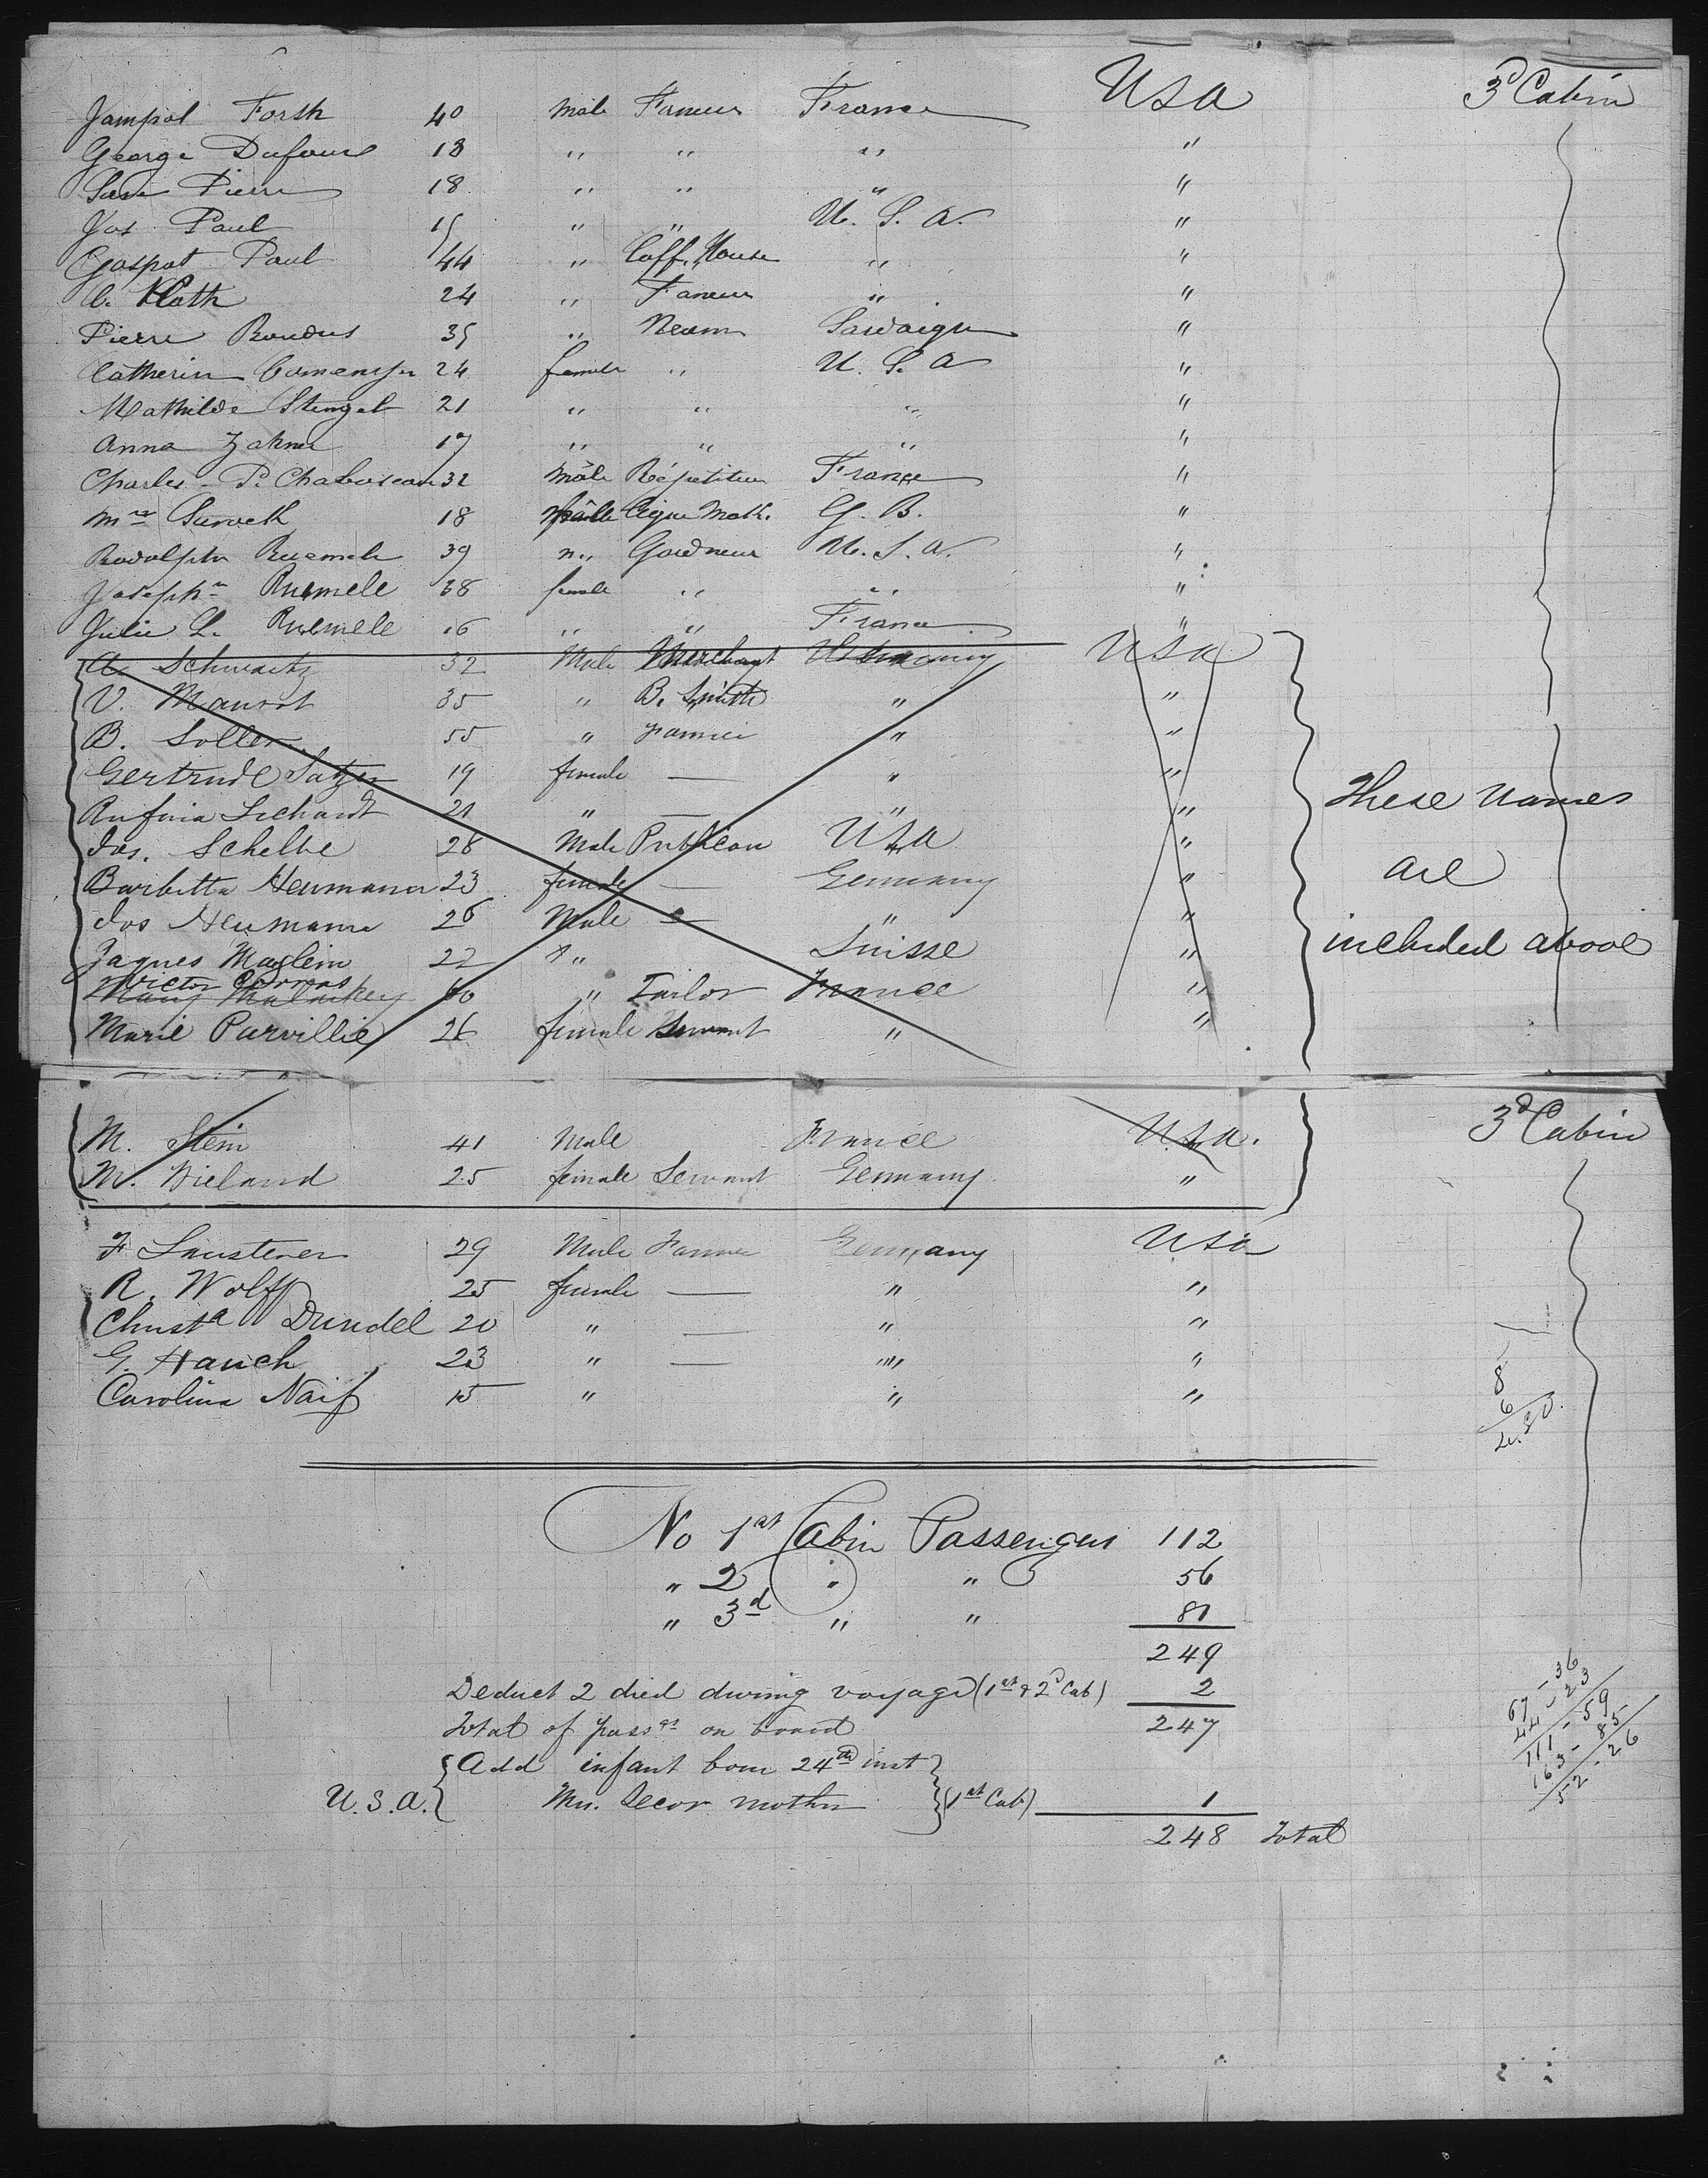 Jampol Forsh 40 Male Farmeur France USA 3d Cabin
George Dufour 13 " " " "
Pierre 18 " " " "
Jos Paul 15 " " U. S. A. "
Gaspat Paul 44 " Coff. House " "
C. Kloth 24 " Farmeur " "
Pierre Boudus 35 " Neam Sardaigne "
Catherin 24 female " U. S. A "
Mathilde Stengel 21 " " " "
Anna Zahner 17 " " " "
Charles P. Chaboseau 32 Mâle Répetiteur France "
Mrs Surveck 18 Mak. G. B. "
Rodolphe Ruemele 39 m., Gardneur U. S. A. "
Joseph Ruemele 38 female " " "
Julie L. Ruemele 16 " " France "
A. Schwartz 32 Male Merchant Germany USA
V. Mansot 35 " B. Smith " "
B. Soller 55 " Farmer " "
Gertrude Satzer 19 female — " "
Rufina Lichardt 21 " — " "
Jos. Schelbe 28 Male Publican USA "
Barbetta Neumann 23 female — Germany "
Jos Neumann 26 Male — " "
Jaques Maglein 22 " " Suisse "
Victor
60 " Tailor France "
Marie Purvillie 26 female Servant " "
These names
are
included above
M. Stein 41 Male France USA. 3d Cabin
M. Wieland 25 female Servant Germany "
F Lausterer 29 Male Farmer Germany USA
R. Wolff 25 female — " "
Christa Dundel 20 " — " "
G. Hauch 23 " — " "
Carolina Naif 15 " " "
No 1st Cabin Passengers 112
" 2d " " 56
" 3d " " 81
249
Deduct 2 died during voyage (1st & 2d Cab) 2
Total of passrs on board 247
Add infant born 24th inst
U. S. A. Mrs. Secor mother (1st Cab) 1
248 Total
8
6
36
67 - 23
44 - 59
111 - 85
163 - 26
52